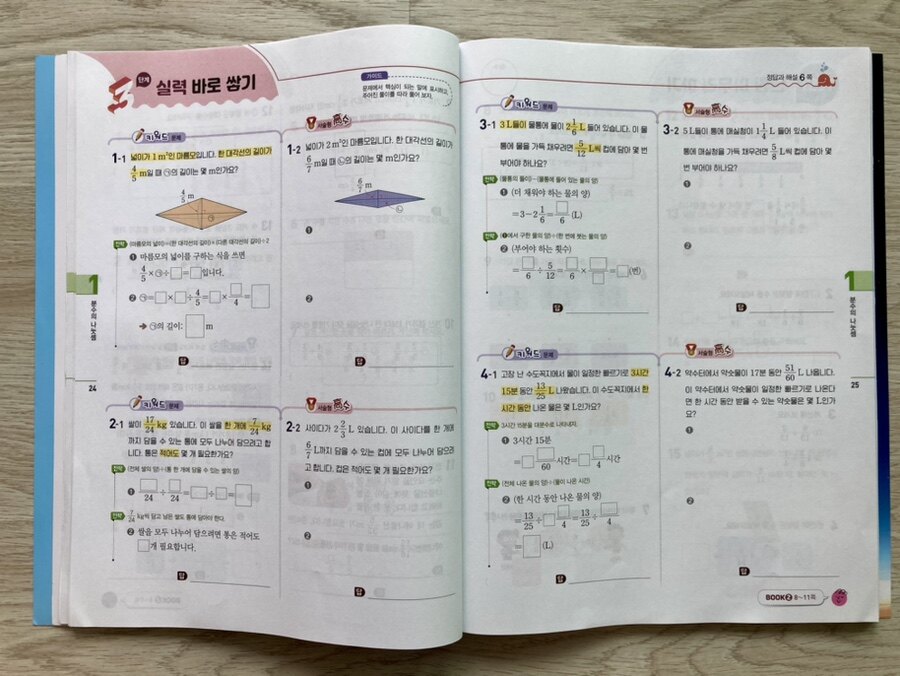 3 단계 실력 바로 쌓기
가이드
문제에서 핵심이 되는 말에 표시하고,
주어진 풀이를 따라 풀어 보자.
키워드 문제
1-1 넓이가 1 m²인 마름모입니다. 한 대각선의 길이가
4/5 m일 때 ㉠의 길이는 몇 m인가요?
4/5 m
㉠
전략 (마름모의 넓이)=(한 대각선의 길이)×(다른 대각선의 길이)÷2
❶ 마름모의 넓이를 구하는 식을 쓰면
4/5×㉠÷□=□입니다.
❷ ㉠=□×□÷4/5=□×□/4=□
➔ ㉠의 길이: □ m
답
서술형 高수
1-2 넓이가 2 m²인 마름모입니다. 한 대각선의 길이가
6/7 m일 때 ㉡의 길이는 몇 m인가요?
6/7 m
㉡
❶
❷
답
키워드 문제
2-1 쌀이 17/24 kg 있습니다. 이 쌀을 한 개에 7/24 kg
까지 담을 수 있는 통에 모두 나누어 담으려고 합
니다. 통은 적어도 몇 개 필요한가요?
전략 (전체 쌀의 양)÷(통 한 개에 담을 수 있는 쌀의 양)
❶ □/24÷□/24=□÷□=□
전략 7/24 kg씩 담고 남은 쌀도 통에 담아야 한다.
❷ 쌀을 모두 나누어 담으려면 통은 적어도
□개 필요합니다.
답
서술형 高수
2-2 사이다가 2 2/3 L 있습니다. 이 사이다를 한 개에
6/7 L까지 담을 수 있는 컵에 모두 나누어 담으려
고 합니다. 컵은 적어도 몇 개 필요한가요?
❶
❷
답
1
분수의 나눗셈
24
정답과 해설 6쪽
키워드 문제
3-1 3 L들이 물통에 물이 2 1/6 L 들어 있습니다. 이 물
통에 물을 가득 채우려면 5/12 L씩 컵에 담아 몇 번
부어야 하나요?
전략 (물통의 들이)-(물통에 들어 있는 물의 양)
❶ (더 채워야 하는 물의 양)
=3-2 1/6=□/6 (L)
전략 (❶에서 구한 물의 양)÷(한 번에 붓는 물의 양)
❷ (부어야 하는 횟수)
=□/6÷5/12=□/6×□/□=□(번)
답
서술형 高수
3-2 5 L들이 통에 매실청이 1 1/4 L 들어 있습니다. 이
통에 매실청을 가득 채우려면 5/8 L씩 컵에 담아 몇
번 부어야 하나요?
❶
❷
답
키워드 문제
4-1 고장 난 수도꼭지에서 물이 일정한 빠르기로 3시간
15분 동안 13/25 L 나왔습니다. 이 수도꼭지에서 한
시간 동안 나온 물은 몇 L인가요?
전략 3시간 15분을 대분수로 나타내자.
❶ 3시간 15분
=□ □/60시간=□ □/4시간
전략 (전체 나온 물의 양)÷(물이 나온 시간)
❷ (한 시간 동안 나온 물의 양)
=13/25÷□ □/4=13/25÷□/4
=□(L)
답
서술형 高수
4-2 약수터에서 약숫물이 17분 동안 51/60 L 나옵니다.
이 약수터에서 약숫물이 일정한 빠르기로 나온다
면 한 시간 동안 받을 수 있는 약숫물은 몇 L인가
요?
❶
❷
답
1
분수의 나눗셈
25
BOOK❷ 8~11쪽